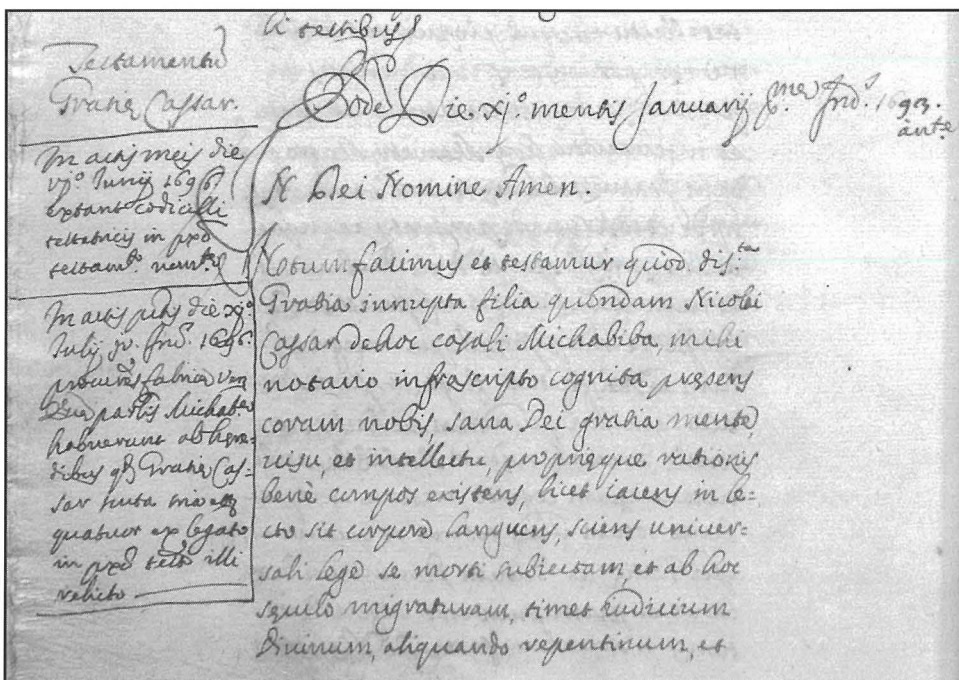 ti testibus
Testamentũ
Gratię Cassar.
In actis meis die
vjº. Junij 1696.
extant codicilli
testatricis in pxõ
testamtº.
In actis die xjº
Julij jv. Ind. 1696.
fabricę Ven
Michaber
habuerunt ab hęre-
dibus qđ Gratię Cas-
sar
quatuor ex legato
in pxõ testº illi
relicto
Eodẽ Die xjº. mensis Januarij Ind.s 1693.
ante
N Dei Nomine Amen.
Notum facimus et testamur quod dis.ta
Gratia innupta filia quondam Nicolai
Cassar de hoc casali Michabiba, mihi
notario infrascripto cognita pręsens
coram nobis, sana Dei gratia mente,
visu, et intellectu, proprięque rationis
benè compos existens, licet iacens in le=
cto sit corpore languens, sciens univer-
sali lege se morti subiectam, et ab hoc
sęculo migraturam, timet iudicium
Divinum, aliquando repentinum, et